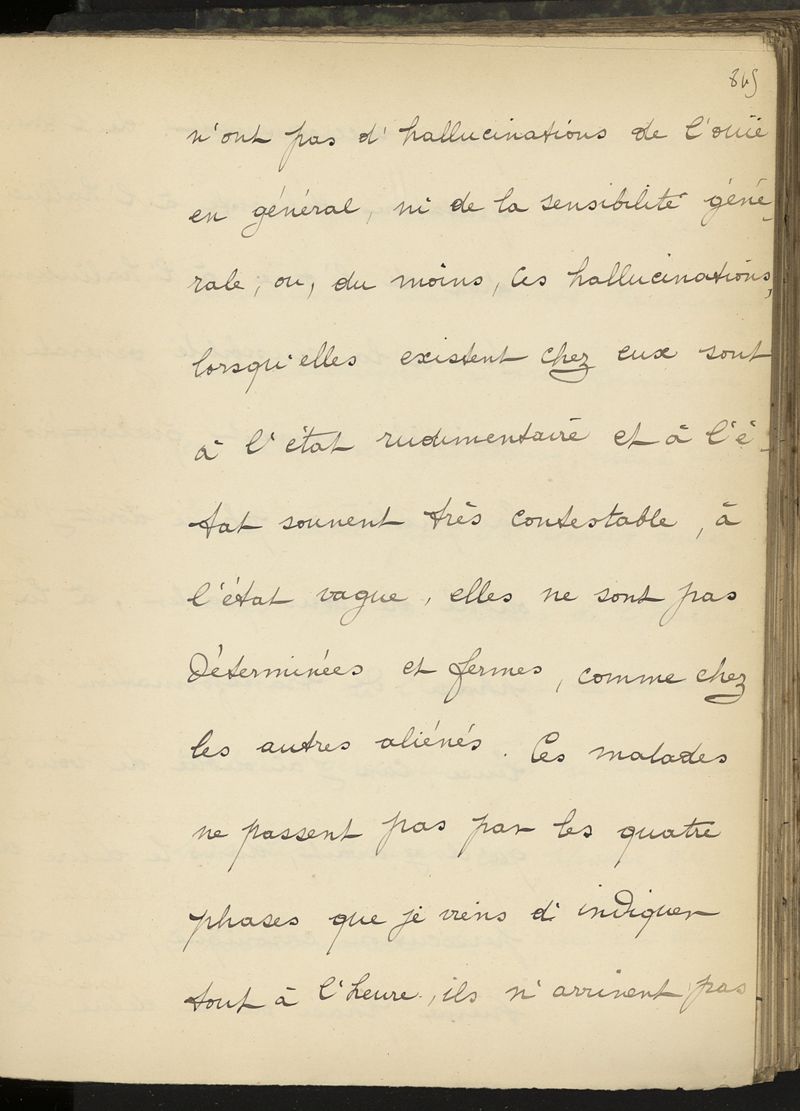 845
n'ont pas d'hallucinations de l'ouïe
en général, ni de la sensibilité géné-
rale, ou, du moins, ces hallucinations,
lorsqu'elles existent chez eux sont
à l'état rudimentaire et à l'é-
tat souvent très contestable, à
l'état vague, elles ne sont pas
déterminées et fermes, comme chez
les autres aliénés. Ces malades
ne passent pas par les quatre
phases que je viens d'indiquer
tout à l'heure, ils n'arrivent pas